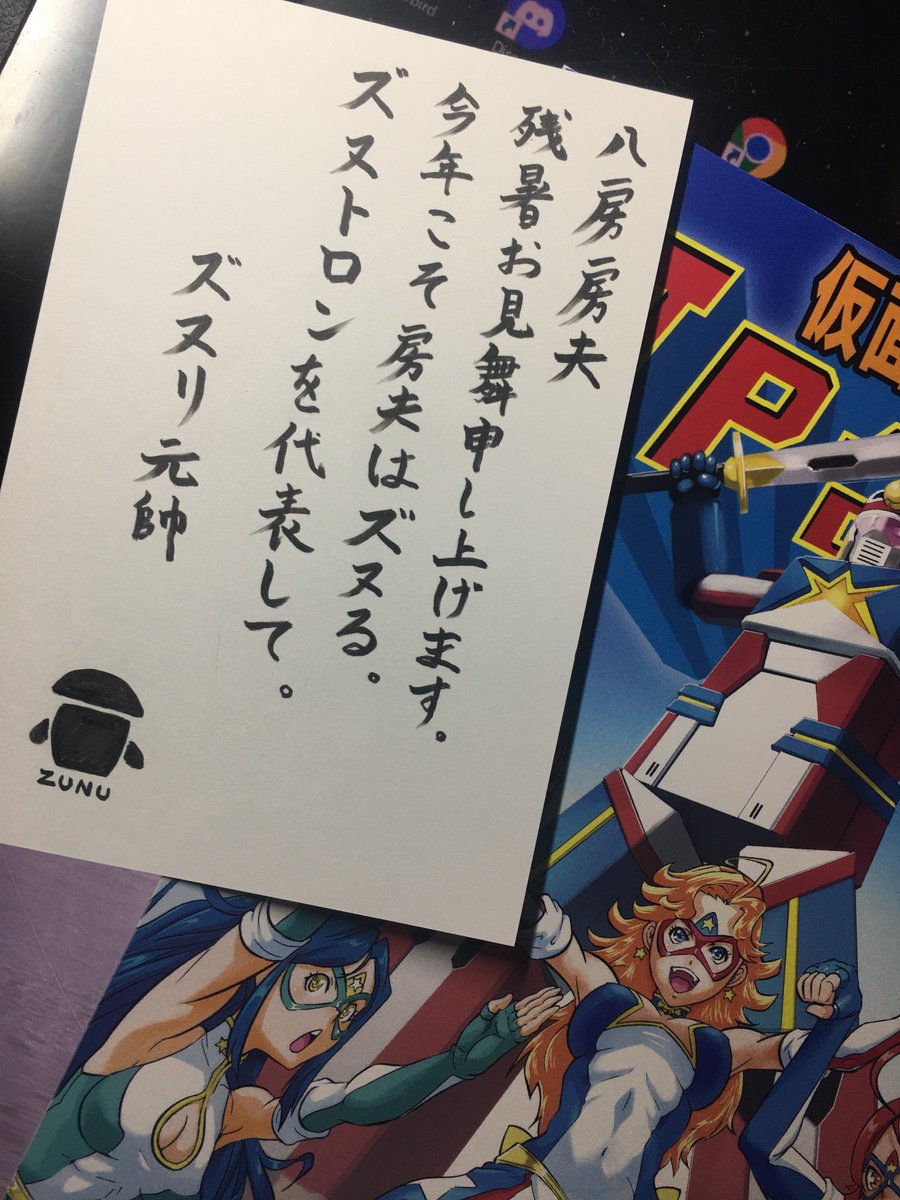 八房房夫
残暑お見舞申し上げます。
今年こそ房夫はズヌる。
ズヌトロンを代表して。
ズヌリ元帥
ZUNU
仮面